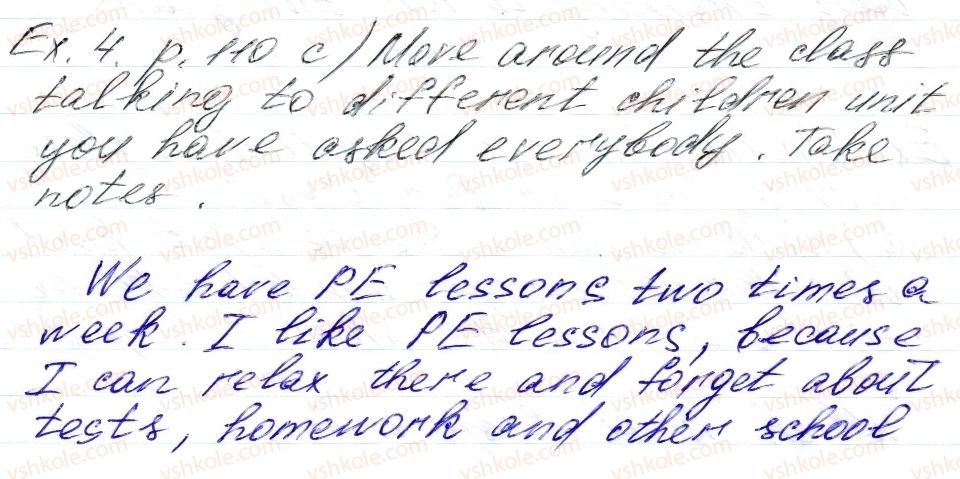 Ex. 4. p. 110 c) Move around the class
talking to different children unit
you have asked everybody. Take
notes.
We have PE lessons two times a
week. I like PE lessons, because
I can relax there and forget about
tests, homework and other school